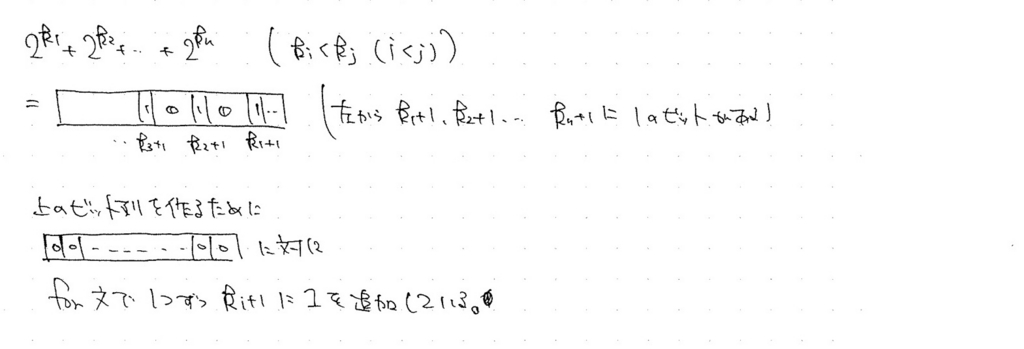 2^{k_1} + 2^{k_2} + ... + 2^{k_n} ( k_i < k_j (i<j) )
= | |1|0|1|0|1|...| (左から k_1+1, k_2+1, ... k_n+1 に 1のビットがある)
... k_3+1 k_2+1 k_1+1
上のビット列を作るために
|0|0|- - - - - - -|0|0| に対して
for 文で 1つずつ k_i+1 に 1 を追加している。